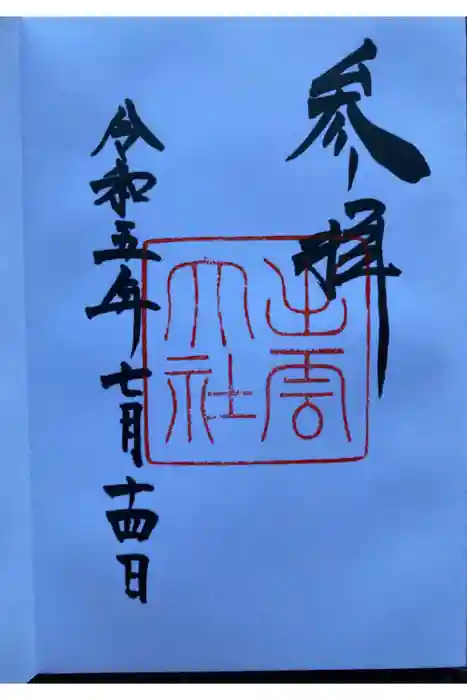 参拝
出雲
大社
令和五年七月十四日